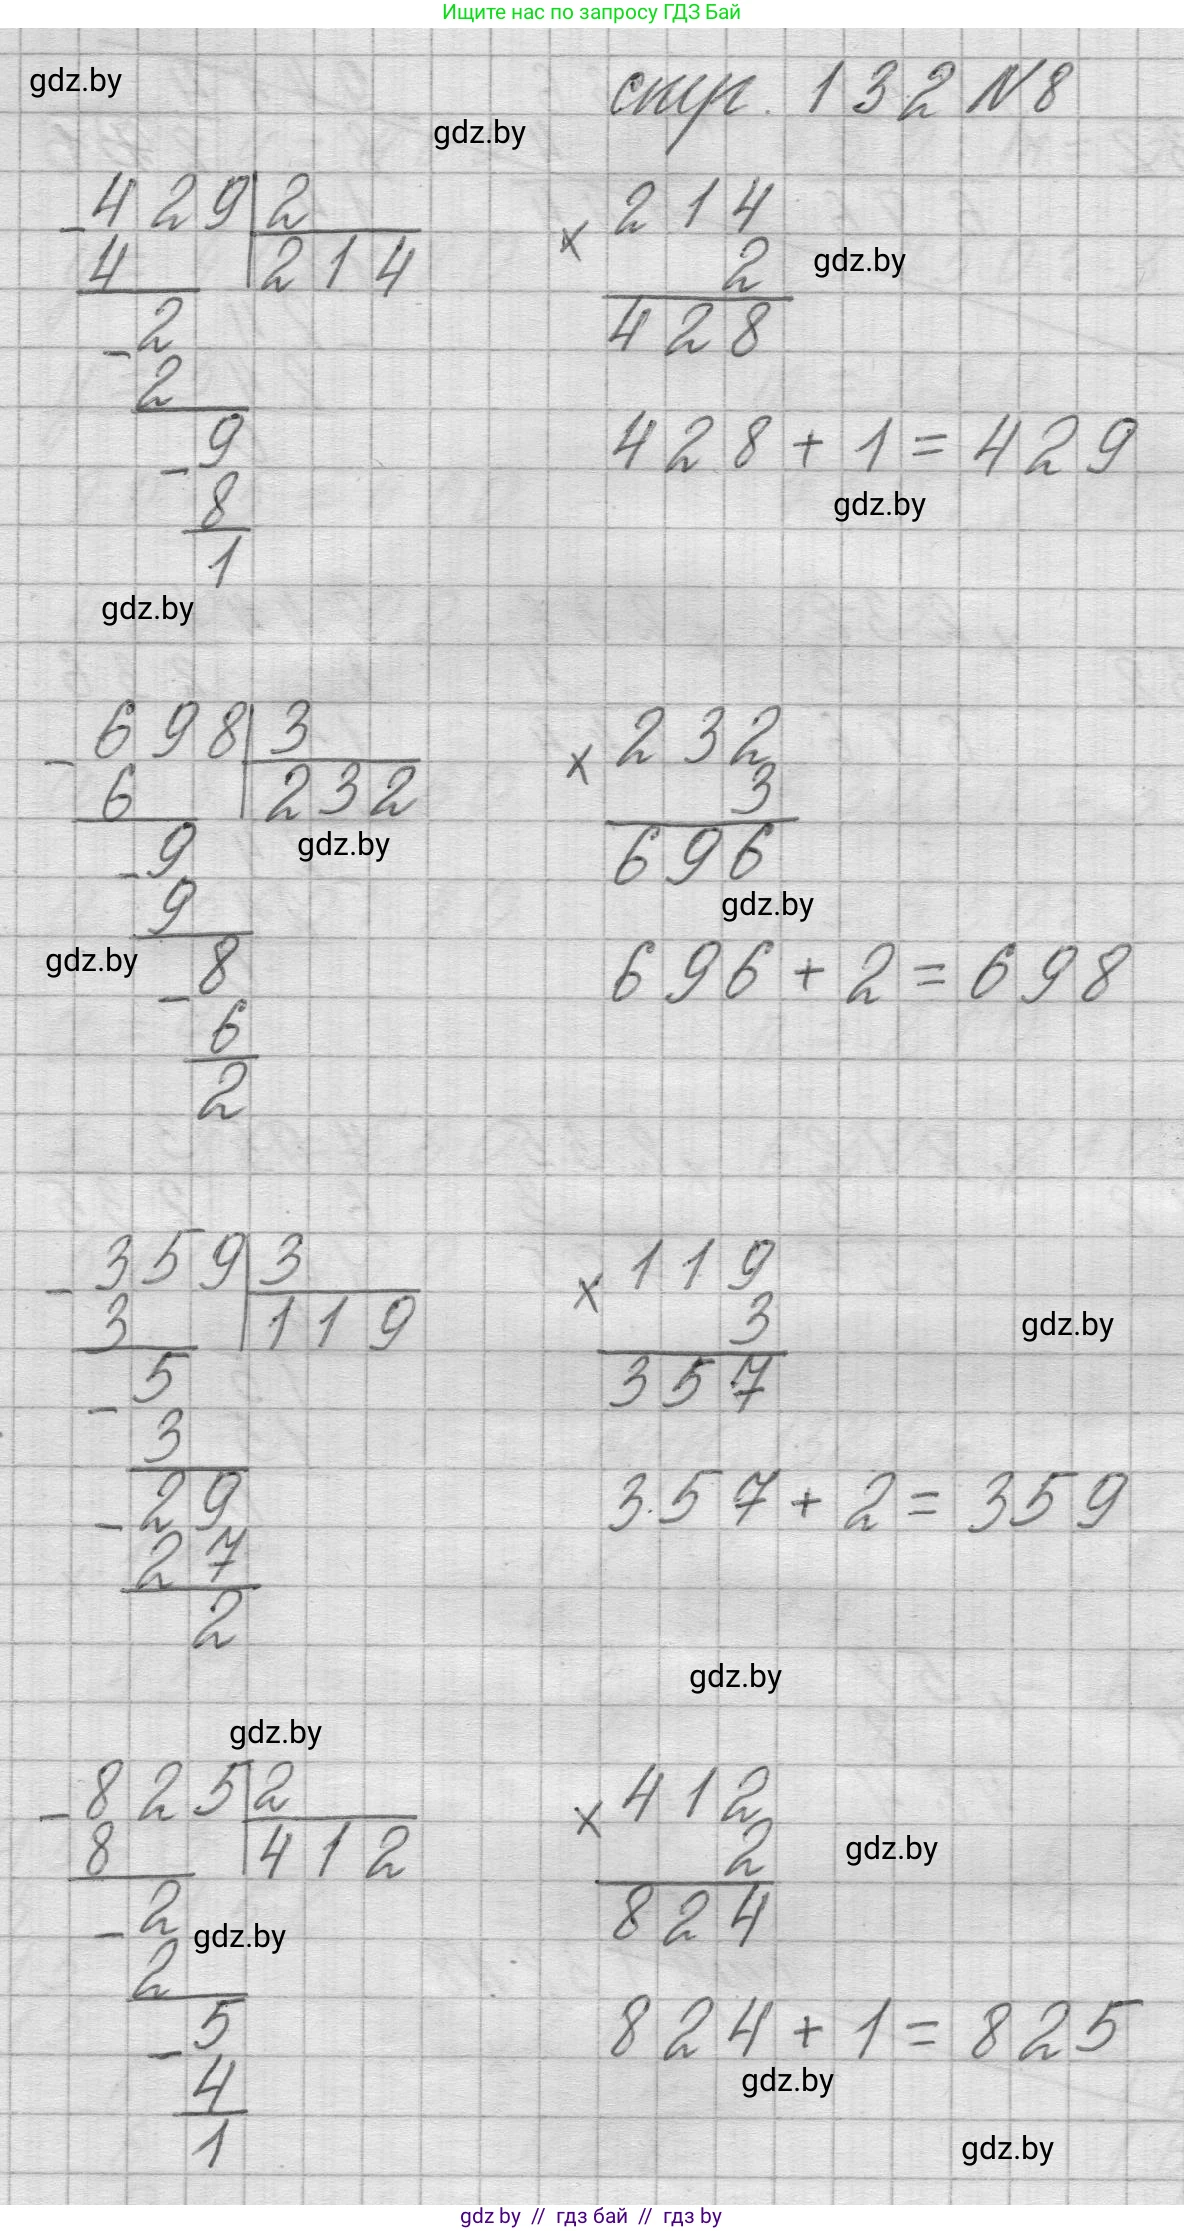 Ищите нас по запросу ГДЗ Бай
gdz.by
стр. 132 №8
gdz.by
- 429 | 2
4 | 214
- 2
2
- 9
8
1
× 214
2
428
gdz.by
428 + 1 = 429
gdz.by
gdz.by
- 698 | 3
6 | 232
gdz.by
- 9
9
gdz.by
- 8
6
2
× 232
3
696
gdz.by
696 + 2 = 698
- 359 | 3
3 | 119
- 5
3
- 29
27
2
× 119
3
gdz.by
357
357 + 2 = 359
gdz.by
gdz.by
- 825 | 2
8 | 412
- 2
gdz.by
2
- 5
4
1
× 412
2
gdz.by
824
824 + 1 = 825
gdz.by
gdz.by
gdz by // гдз бай // гдз by